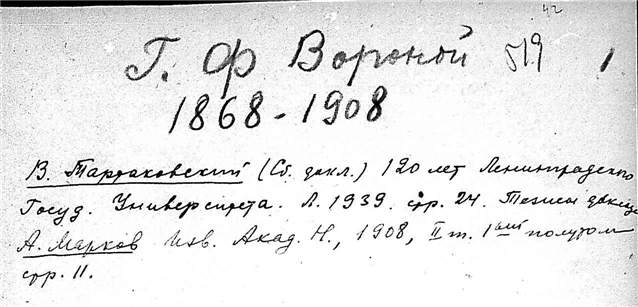 42
Г. Ф Вороной 519 1
1868-1908
В. Тартаковский (Сб. докл.) 120 лет Ленинградского
Госуд. Университета. Л. 1939. стр. 24. Тезисы
А. Марков Изв. Акад. Н., 1908, II т. 1ый полутом
стр. 11.